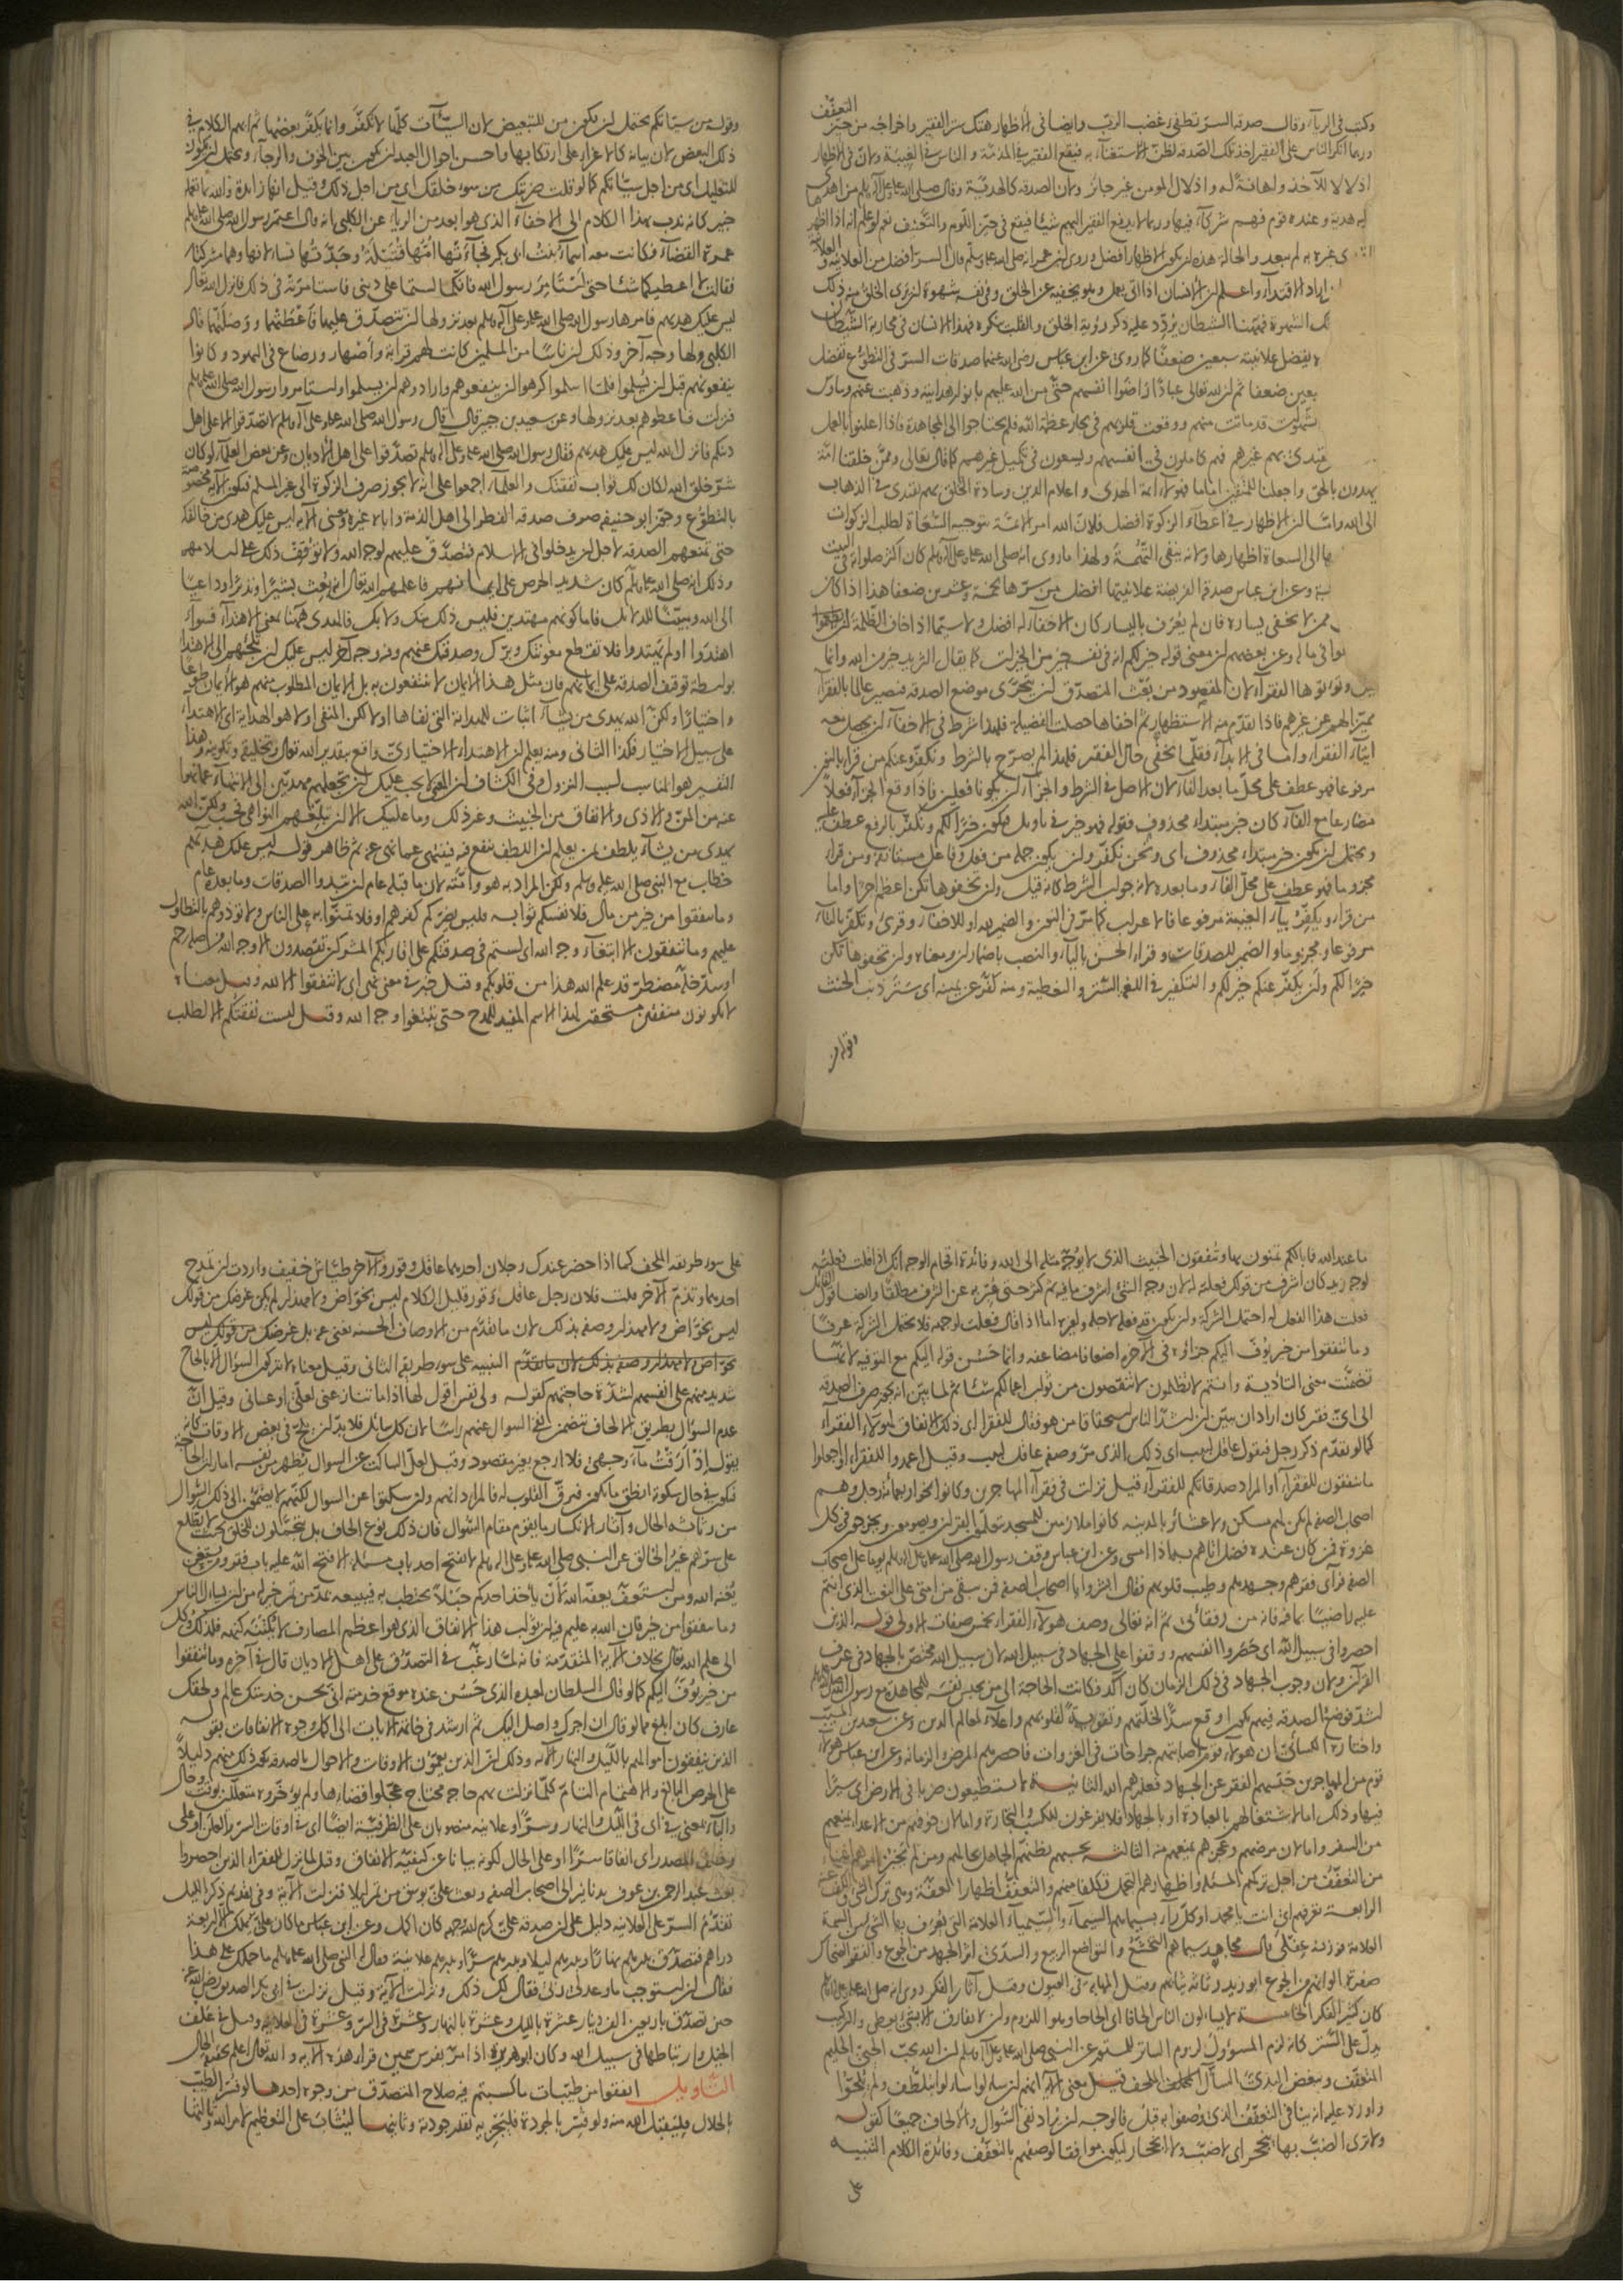 التعفف
وكتب في الرياء وقال صدقة السر تطفئ غضب الرب وايضا في الاظهار هتك ستر الفقير واخراجه من حيز
وربما انكر الناس على الفقير اخذ تلك الصدقة لظن الاستغناء به فيقع الفقير في المذمة والناس في الغيبة ولان في الاظهار
اذلالا للآخذ واهانة له واذلال المؤمن غير جائز ولان الصدقة كالهدية وقال صلى الله عليه وعلى آله وسلم من اهدى
اليه هدية وعنده قوم فهم شركاؤه فيها وربما لا يدفع الفقير اليهم شيئا فيقع في حيز اللوم والتعنيف نعم لو علم انه اذا اظهر
غيره به لم يبعد والحالة هذه ان يكون الاظهار افضل وروى ابن عمر انه صلى الله عليه وسلم قال السر افضل من العلانية والعلانية
لمن اراد الاقتداء واعلم ان الانسان اذا اتى بعمل وهو يخفيه عن الخلق وفي نفسه شهوة ان يرى الخلق منه ذلك
تلك الشهوة فههنا الشيطان يردد عليه ذكر رؤية الخلق والقلب ينكره فهذا الانسان في محاربة الشيطان
يفضل علانيته سبعين ضعفا كما روى عن ابن عباس رضى الله عنهما صدقات السر في التطوع تفضل
بسبعين ضعفا ثم ان لله تعالى عبادا راضوا انفسهم حتى من الله عليهم بانوار هدايته وذهبت عنهم وساوس
الشهوات قد ماتت منهم ووقعت قلوبهم في بحار عظمة الله فلم يحتاجوا الى المجاهدة فاذا اعلنوا بالعمل
يقتدى بهم غيرهم فهم كاملون في انفسهم ويسعون في تكميل غيرهم كما قال تعالى وممن خلقنا امة
يهدون بالحق واجعلنا للمتقين اماما فهؤلاء ائمة الهدى واعلام الدين وسادة الخلق بهم يقتدى في الذهاب
الى الله واما ان الاظهار في اعطاء الزكوة افضل فلان الله امر الائمة بتوجيه السعاة لطلب الزكوات
الى السعاة اظهارها ولانه ينفي التهمة ولهذا ما روى انه صلى الله عليه وعلى آله وسلم كان اكثر صلواته في البيت
وعن ابن عباس صدقة الفريضة علانيتها افضل من سرها بخمسة وعشرين ضعفا هذا اذا كان
ممن لا يخفى يساره فان لم يعرف باليسار كان الاخفاء له افضل ولا سيما اذا خاف الظلمة ان يطمعوا
في ماله وعن بعضهم ان معنى قوله خير لكم انه في نفسه خير من الخيرات كما يقال الثريد خير من الله وانما
وتؤتوها الفقراء لان المقصود من بعث المتصدق ان يتحرى موضع الصدقة فيصير عالما بالفقراء
مميزا لهم عن غيرهم فاذا تقدم منه الاستظهار ثم اخفاها حصلت الفضيلة فلهذا شرط في الاخفاء ان يحصل معه
ايتاء الفقراء واما في الابداء فقلما يخفى حال الفقير فلهذا لم يصرح بالشرط ونكفر عنكم من قرأ بالنون
مرفوعا فهو عطف على محل ما بعد الفاء لان الاصل في الشرط والجزاء ان يكونا فعلين فاذا وقع الجزاء فعلا
مضارعا مع الفاء كان خبر مبتداء محذوف فقوله فهو خير في تأويل فيكون خيرا لكم ونكفر بالرفع عطف عليه
ويحتمل ان يكون خبر مبتداء محذوف اى ونحن نكفر وان يكون جملة من فعل وفاعل مستانفة ومن قرأ
مجزوما فهو عطف على محل الفاء وما بعده لانه جواب الشرط كانه قيل وان تخفوها تكن اعظم اجرا واما
من قرأ ويكفر بياء الغيبة مرفوعا فالاعراب كما مر في النون والضمير لله او للاخفاء وقرئ وتكفر بالتاء
مرفوعا ومجزوما والضمير للصدقات وقرأ الحسن بالياء والنصب باضمار ان ومعناه وان تخفوها تكن
خيرا لكم وان يكفر عنكم خير لكم والتكفير في اللغة الستر والتغطية ومنه كفر عن يمينه اى ستر ذنب الحنث
وقوله من
وقوله من سيئاتكم يحتمل ان يكون من للتبعيض لان السيئات كلها لا تكفر وانما يكفر بعضها ثم ابهم الكلام في
ذلك البعض لان بيانه كالاغراء على ارتكابها واحسن احوال العبد ان يكون بين الخوف والرجاء ويحتمل ان يكون
للتعليل اى من اجل سيئاتكم كما لو قلت ضربتك من سوء خلقك اى من اجل ذلك وقيل انها زائدة والله بما تعملون
خبير كانه ندب بهذا الكلام الى الاخفاء الذى هو ابعد من الرياء عن الكلبي انه قال اعتمر رسول الله صلى الله عليه وسلم
عمرة القضاء وكانت معه اسماء بنت ابى بكر فجاءتها امها قتيلة وجدتها تسألانها وهما مشركتان
فقالت لا اعطيكما شيئا حتى استأمر رسول الله فانكما لستما على ديني فاستامرته في ذلك فانزل الله تعالى
ليس عليك هديهم فامرها رسول الله صلى الله عليه وعلى آله وسلم بعد نزولها ان تتصدق عليهما فاعطتهما ووصلتهما قال
الكلبي ولها وجه آخر وذلك ان ناسا من المسلمين كانت لهم قرابة واصهار ورضاع في اليهود وكانوا
ينفعونهم قبل ان يسلموا فلما اسلموا كرهوا ان ينفعوهم وارادوهم ان يسلموا واستامروا رسول الله صلى الله عليه وسلم
فنزلت فاعطوهم بعد نزولها وعن سعيد بن جبير قال قال رسول الله صلى الله عليه وعلى آله وسلم لا تصدقوا الا على اهل
دينكم فانزل الله ليس عليك هديهم فقال رسول الله صلى الله عليه وعلى آله وسلم تصدقوا على اهل الاديان وعن بعض العلماء لو كان
شر خلق الله لكان لك ثواب نفقتك والعلماء اجمعوا على انه لا يجوز صرف الزكوة الى غير المسلم فتكون الآية مخصوصة
بالتطوع وجوز ابو حنيفة صرف صدقة الفطر الى اهل الذمة واباه غيره ومعنى الآية ليس عليك هدى من خالفك
حتى تمنعهم الصدقة لاجل ان يدخلوا في الاسلام فتصدق عليهم لوجه الله ولا توقف ذلك على اسلامهم
وذلك انه صلى الله عليه وسلم كان شديد الحرص على ايمانهم فاعلمه الله تعالى انه بعث بشيرا ونذيرا وداعيا
الى الله ومبينا للدلائل فاما كونهم مهتدين فليس ذلك منك ولا بك فالهدى ههنا بمعنى الاهتداء فسواء
اهتدوا او لم يهتدوا فلا تقطع معونتك وبرك وصدقتك عنهم وفيه وجه آخر ليس عليك ان تلجئهم الى الاهتداء
بواسطة توقيف الصدقة على ايمانهم فان مثل هذا الايمان لا ينتفعون به بل الايمان المطلوب منهم هو الايمان طوعا
واختيارا ولكن الله يهدى من يشاء اثبات للهداية التي نفاها اولا لكن المنفي اولا هو الهداية اى الاهتداء
على سبيل الاختيار فكذا الثاني ومنه يعلم ان الاهتداء الاختيارى واقع بتقدير الله تعالى وتخليقه وتكوينه وهذا
التفسير هو المناسب لسبب النزول وفي الكشاف ان المعنى لا يجب عليك ان تجعلهم مهديين الى الانتهاء عما نهوا
عنه من المن والاذى والانفاق من الخبيث وغير ذلك وما عليك الا ان تبلغهم النواهي فحسب ولكن الله
يهدى من يشاء يلطف بمن يعلم ان اللطف ينفع فيه فينتهي عما نهى عنه ثم ظاهر قوله ليس عليك هديهم
خطاب مع النبي صلى الله عليه وسلم ولكن المراد به هو وامته لان ما قبله عام ان تبدوا الصدقات وما بعده عام
وما تنفقوا من خير من مال فلانفسكم ثوابه فليس يضركم كفرهم او فلا تمنوا به على الناس ولا تؤذوهم بالتطاول
عليهم وما تنفقون الا ابتغاء وجه الله اى لستم في صدقتكم على اقاربكم المشركين تقصدون الا وجه الله من صلة رحم
او سد خلة مضطر قد علم الله هذا من قلوبكم وقيل خبر في معنى نهى اى لا تنفقوا الا لله وقيل معناه
لا تكونون منفقين مستحقين لهذا الاسم المفيد للمدح حتى تبتغوا وجه الله وقيل ليست نفقتكم الا لطلب
ما عند الله فما بالكم تمنون بها وتنفقون الخبيث الذى لا يوجه مثله الى الله وفائدة اقحام الوجه انك اذا قلت فعلته
لوجه زيد كان اشرف من قولك فعلته له لان وجه الشئ اشرف ما فيه ثم كثر حتى عبر به عن الشرف مطلقا وايضا قول القائل
فعلت هذا الفعل له احتمل الشركة وان يكون قد فعله لاجله ولغيره اما اذا قال فعلت لوجهه فلا يحتمل الشركة عرفا
وما تنفقوا من خير يوف اليكم جزاؤه في الآخرة اضعافا مضاعفة وانما حسن قوله اليكم مع التوفية لانها
تضمنت معنى التأدية وانتم لا تظلمون لا تنقصون من ثواب اعمالكم شيئا ثم لما بين انه يجوز صرف الصدقة
الى اى فقير كان اراد ان يبين ان اشد الناس استحقاقا من هو فقال للفقراء اى ذلك الانفاق لهؤلاء الفقراء
كما لو تقدم ذكر رجل فتقول عاقل لبيب اى ذلك الذى مر وصفه عاقل لبيب وقيل اعمدوا للفقراء او اجعلوا
ما تنفقون للفقراء او المراد صدقاتكم للفقراء قيل نزلت في فقراء المهاجرين وكانوا نحوا من اربعمائة رجل وهم
اصحاب الصفة لم يكن لهم مسكن ولا عشائر بالمدينة كانوا ملازمين للمسجد يتعلمون القرآن ويصومون ويخرجون في كل
غزوة فمن كان عنده فضل اتاهم به اذا امسى وعن ابن عباس وقف رسول الله صلى الله عليه وعلى آله وسلم يوما على اصحاب
الصفة فرأى فقرهم وجهدهم وطيب قلوبهم فقال ابشروا يا اصحاب الصفة فمن بقي من امتي على النعت الذى انتم
عليه راضيا بما فيه فانه من رفقائي ثم انه تعالى وصف هؤلاء الفقراء بخمس صفات الاولى قوله الذين
احصروا في سبيل الله اى حصروا انفسهم ووقفوا على الجهاد في سبيل الله لان سبيل الله مختص بالجهاد في عرف
القرآن ولان وجوب الجهاد في ذلك الزمان كان آكد فكانت الحاجة الى من يحبس نفسه للمجاهدة مع رسول الله صلى الله عليه وسلم
اشد فوضع الصدقة فيهم يكون اوقع سدا لخلتهم وتقوية لقلوبهم واعلاء لمعالم الدين وعن سعيد بن المسيب
واختاره الكسائي ان هؤلاء قوم اصابتهم جراحات في الغزوات فاحصرهم المرض والزمانة وعن ابن عباس هؤلاء
قوم من المهاجرين حبسهم الفقر عن الجهاد فعذرهم الله الثانية لا يستطيعون ضربا في الارض اى سيرا
فيها وذلك اما لاشتغالهم بالعبادة او بالجهاد فلا يفرغون للكسب والتجارة واما لان خوفهم من الاعداء يمنعهم
من السفر واما لان مرضهم وعجزهم يمنعهم منه الثالثة يحسبهم يظنهم الجاهل بحالهم ومن لم يختبر امرهم اغنياء
من التعفف من اجل تركهم المسئلة واظهارهم التجمل تكلفا منهم والتعفف اظهار العفة وهي ترك الشئ والكف عنه
الرابعة تعرفهم اى انت يا محمد او كل راء بسيماهم السيما والسيمياء العلامة التي يعرف بها الشئ من السمة
العلامة فوزنه عفلى قال مجاهد سيماهم التخشع والتواضع الربيع والسدى اثر الجهد من الجوع والفقر الضحاك
صفرة الوانهم من الجوع ابو زيد رثاثة ثيابهم وقيل المهابة في العيون وقيل آثار الفكر روى انه صلى الله عليه وعلى آله وسلم
كان كثير الفكر الخامسة لا يسئلون الناس الحافا اى الحاحا وهو اللزوم وان لا يفارق الا بشئ يعطى والتركيب
يدل على الستر كانه لزم المسؤول لزوم الساتر للمستور عن النبي صلى الله عليه وعلى آله وسلم ان الله يحب الحيي الحليم
المتعفف ويبغض البذى السآل الملحف قيل معنى الآية انهم ان سألوا سألوا بتلطف ولم يلحوا
واورد عليه انه ينافي التعفف الذى وصفوا به قبل فالوجه ان يراد نفي السؤال والالحاف جميعا كقوله
ولا ترى الضب بها ينجحر اى لا ضب ولا انجحار ليكون موافقا لوصفهم بالتعفف وفائدة الكلام التنبيه
على
على سوء طريقة الملحف كما اذا حضر عندك رجلان احدهما عاقل وقور والآخر طياش خفيف واردت ان تمدح
احدهما وتذم الآخر قلت فلان رجل عاقل وقور قليل الكلام ليس بخواض ولا مهذار لم يكن غرضك من قولك
ليس بخواض ولا مهذار وصفه بذلك لان ما تقدم من الاوصاف الحسنة يغني عنه بل غرضك من قولك ليس
بخواض ولا مهذار وصفه بذلك لان ما تقدم التنبيه على سوء طريقة الثاني وقيل معناه لا يتركون السؤال الا بالحاح
شديد منهم على انفسهم لشدة حاجتهم كقوله ولى نفس اقول لها اذا ما تنازعني لعلى او عساني وقيل ان
عدم السؤال بطريق الالحاف تضمن نفي السؤال عنهم راسا لان كل سائل فلا بد ان يلح في بعض الاوقات كانه
يقول اذا ارقت ماء وجهي فلا ارجع بغير مقصود وقيل لعل الساكت عن السؤال يظهر من نفسه امارات الحاجة
فيكون في حال سكوته انطق ما يكون فيرق القلوب له فالمراد انهم وان سكتوا عن السؤال لكنهم لا يضمون الى ذلك السؤال
من رثاثة الحال وآثار الانكسار ما يقوم مقام السؤال فان ذلك نوع الحاف بل يتجملون للخلق بحيث لا يطلع
على سرهم غير الخالق عن النبي صلى الله عليه وعلى آله وسلم لا يفتح احد باب مسئلة الا فتح الله عليه باب فقر ومن يستغن
يغنه الله ومن يستعفف يعفه الله لأن يأخذ احدكم حبلا يحتطب به فيبيعه بمد من تمر خير له من ان يسأل الناس
وما تنفقوا من خير فان الله به عليم فيه ان ثواب هذا الانفاق الذى هو اعظم المصارف لا يكتنه كنهه فلذلك وكل
الى علم الله تعالى بخلاف الآية المتقدمة فانه لما رغب في التصدق على اهل الاديان قال في آخره وما تنفقوا
من خير يوف اليكم كما لو قال السلطان لعبده الذى حسن عنده موقع خدمته انى بحسن خدمتك عالم ولحقك
عارف كان ابلغ مما لو قال ان اجرك واصل اليك ثم ارشد في خاتمة الآيات الى اكمل وجوه الانفاقات بقوله
الذين ينفقون اموالهم بالليل والنهار الآية وذلك ان الذين يعمون الاوقات والاحوال بالصدقة يكون ذلك منهم دليلا
على الحرص البالغ والاهتمام التام كلما نزلت بهم حاجة محتاج عجلوا قضاءها ولم يؤخروه متعللين بوقت وحال
والباء بمعنى في اى في الليل والنهار وسرا وعلانية منصوبان على الظرفية ايضا اى في اوقات السر والعلن او على
وصف المصدر اى انفاقا سرا او على الحال لكونه بيانا عن كيفية الانفاق وقيل لما نزل للفقراء الذين احصروا
بعث عبد الرحمن بن عوف بدنانير الى اصحاب الصفة وبعث على بوسق من تمر ليلا فنزلت الآية وفي تقديم ذكر الليل
تقدم السر على العلانية دليل على ان صدقة على كرم الله وجهه كان اكمل وعن ابن عباس ما كان على يملك الا اربعة
دراهم فتصدق بدرهم نهارا وبدرهم ليلا وبدرهم سرا وبدرهم علانية فقال له النبي صلى الله عليه وسلم ما حملك على هذا
فقال ان استوجب ما وعدنى ربى فقال لك ذلك ونزلت الآية وقيل نزلت في ابى بكر الصديق رضى الله عنه
حين تصدق باربعين الف دينار عشرة بالليل وعشرة بالنهار وعشرة في السر وعشرة في العلانية وقيل في علف
الخيل وارتباطها في سبيل الله وكان ابو هريرة اذا مر بفرس سمين قرأ هذه الآية والله تعالى اعلم بحقيقة الحال
التأويل انفقوا من طيبات ما كسبتم فيه صلاح المتصدق من وجوه احدها لو فسر الطيب
بالحلال فليتقبل الله منه ولو فسر بالجودة فليجزيه بقدر جودته وثانيها ليثاب على التعظيم لامر الله وثالثها